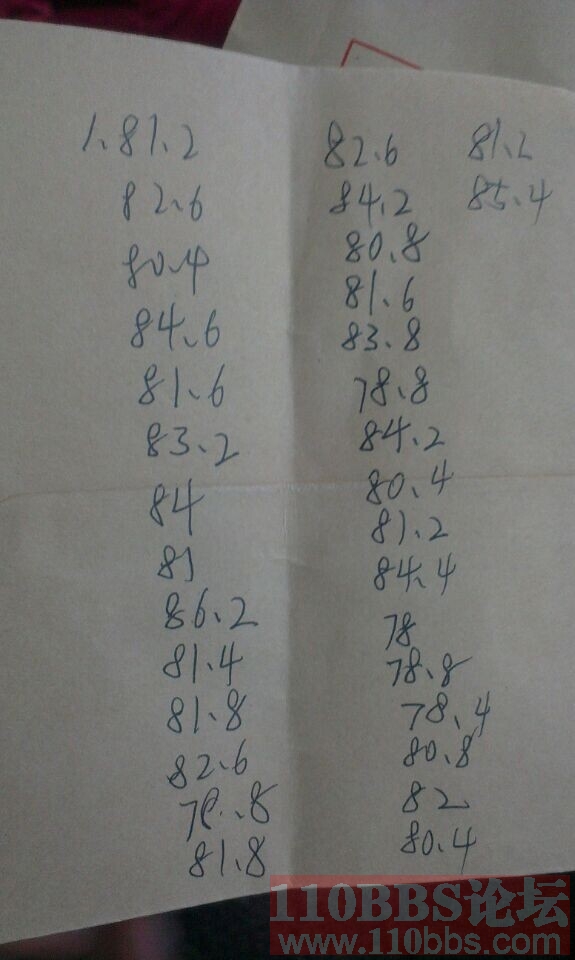 1、81.2
82.6
80.4
84.6
81.6
83.2
84
81
86.2
81.4
81.8
82.6
81.8
82.6
84.2
80.8
81.6
83.8
78.8
84.2
80.4
81.2
84.4
78
78.8
78.4
80.8
82
80.4
81.2
85.4
110BBS论坛
www.110bbs.com